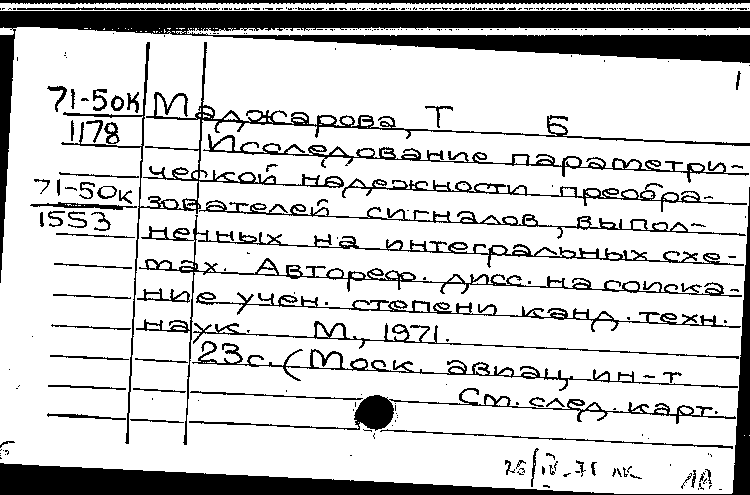 1
71-50К Маджарова, Т Б
1178 Исследование параметри-
ческой надежности преобра-
71-50К зователей сигналов, выпол-
1553 ненных на интегральных схе-
мах. Автореф. дисс. на соиска-
ние учен. степени канд. техн.
наук. М., 1971.
23с. (Моск. авиац. ин-т
См. след. карт.